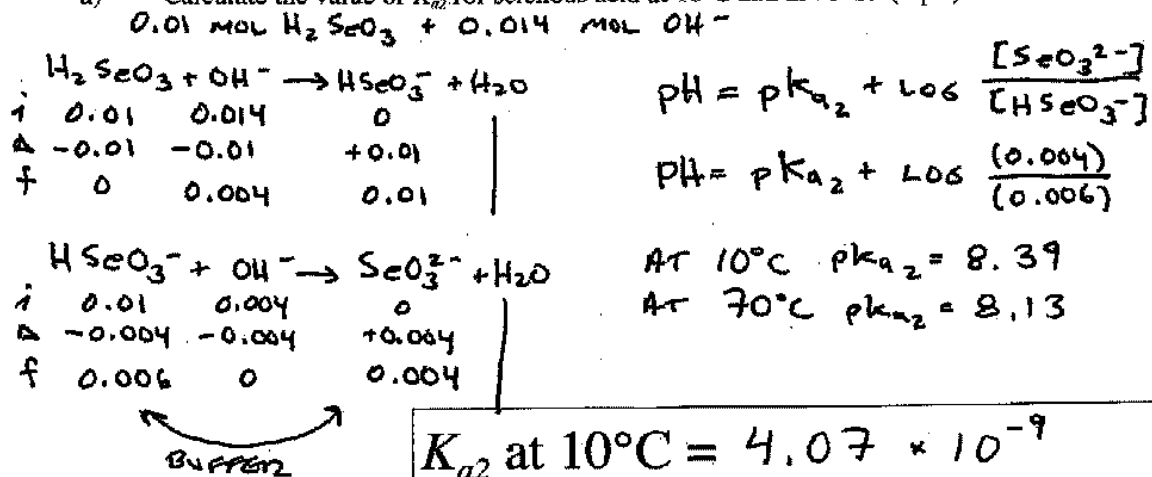 a) Calculate the value of Ka2 for selenous acid at 10°C and
0.01 MOL H2SeO3 + 0.014 MOL OH-
H2SeO3 + OH- → HSeO3- + H2O
i 0.01 0.014 0
Δ -0.01 -0.01 +0.01
f 0 0.004 0.01
HSeO3- + OH- → SeO3^2- + H2O
i 0.01 0.004 0
Δ -0.004 -0.004 +0.004
f 0.006 0 0.004
BUFFER
pH = pKa2 + LOG [SeO3^2-]
[HSeO3-]
pH = pKa2 + LOG (0.004)
(0.006)
AT 10°C pka2 = 8.39
AT 70°C pka2 = 8.13
Ka2 at 10°C = 4.07 × 10^-9